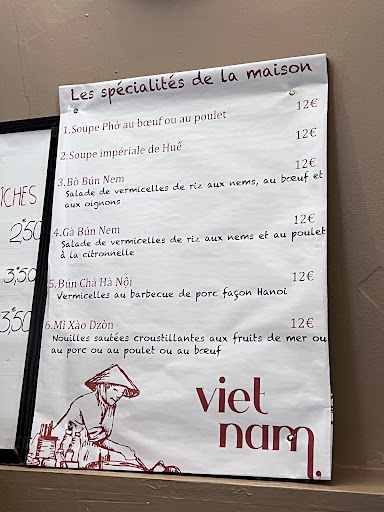 Les spécialités de la maison
1.Soupe Phở au bœuf ou au poulet 12€
2.Soupe impériale de Huế 12€
3.Bò Bún Nem 12€
Salade de vermicelles de riz aux nems, au bœuf et
aux oignons
4.Gà Bún Nem 12€
Salade de vermicelles de riz aux nems et au poulet
à la citronnelle
5.Bún Chả Hà Nội 12€
Vermicelles au barbecue de porc façon Hanoi
6.Mì Xào Dzòn 12€
Nouilles sautées croustillantes aux fruits de mer ou
au porc ou au poulet ou au bœuf
viet
nam.
ICHES
2€50
3,50
3€50